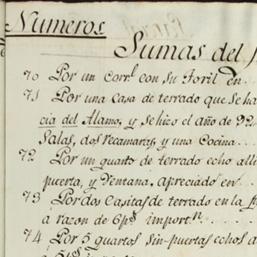 Numeros
Sumas del
70 Por un Corrl. con su Toril en
71 Por una Casa de terrado que se ha
cia del Alamo, y se hizo el año de 92
Salas, dos recamaras y una Cocina
72 Por un quarto de terrado echo
puerta, y Ventana. Apreciados en
73 Por dos Casitas de terrado en la
á razon de 6ps. importn.
74 Por 5 quartos sin puertas echos a